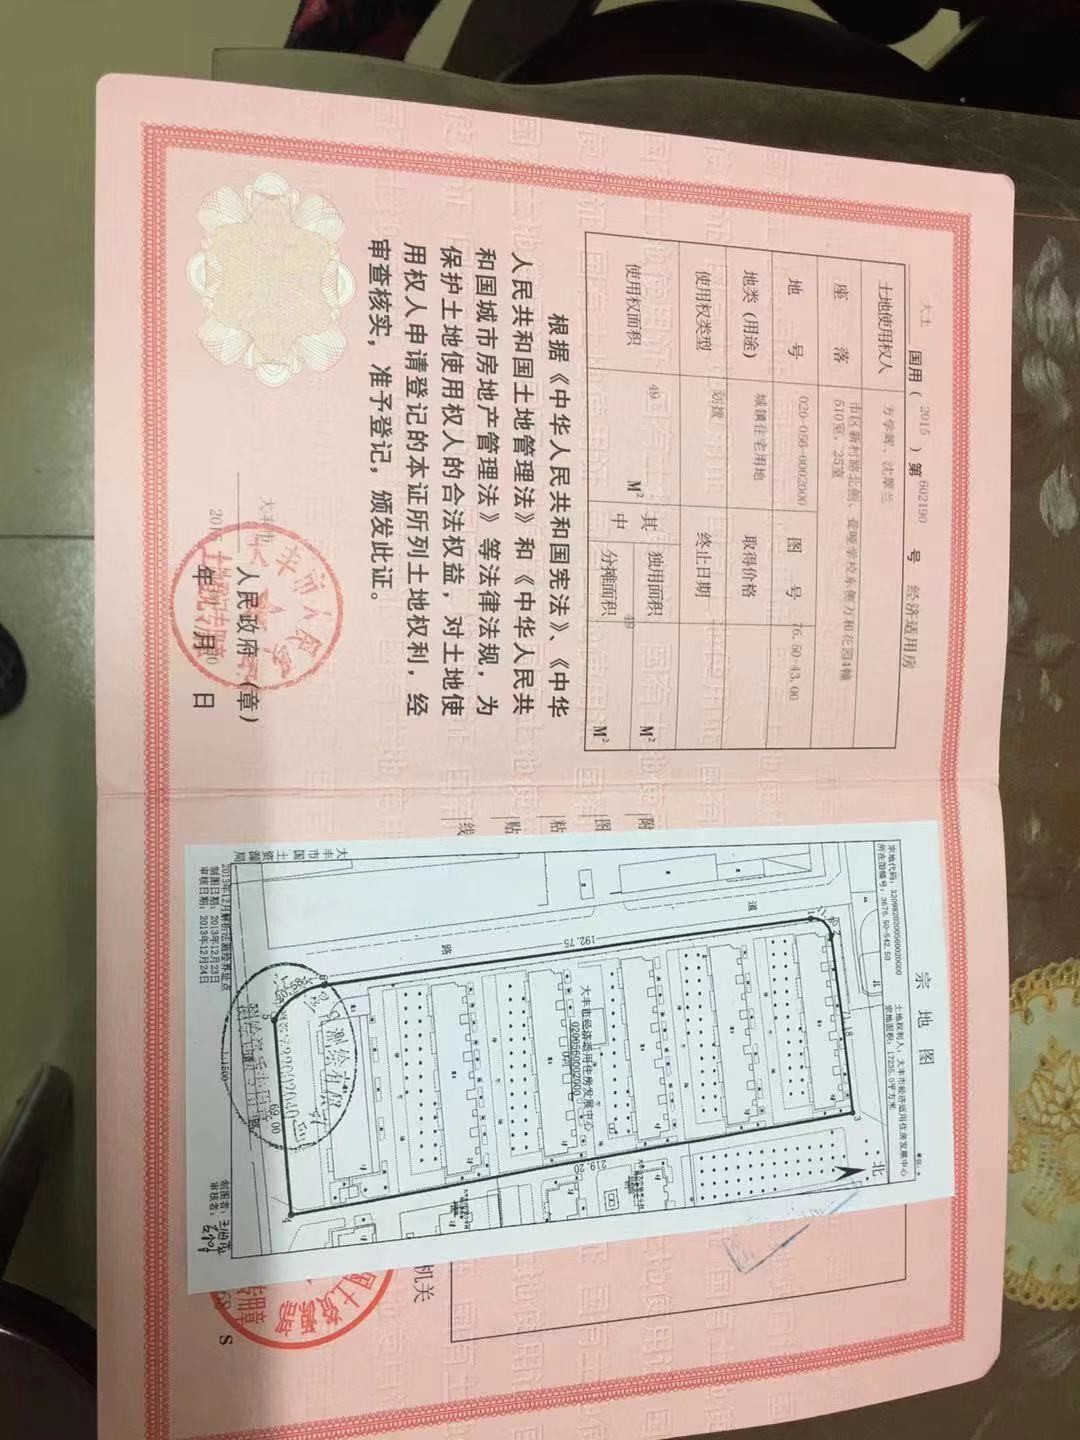 大土 国用( 2015 )第 602190 号 经济适用房
土地使用权人 方学辉、沈翠兰
座 落 市区新村路北侧、聋哑学校东侧万和花园4幢
510室,25室
地 号 020-056-0002000 图 号 76.50-43.00
地类(用途) 城镇住宅用地 取得价格
使用权类型 划拨 终止日期
使用权面积 49 M² 其中 独用面积 M²
分摊面积 49 M²
根据《中华人民共和国宪法》、《中华
人民共和国土地管理法》和《中华人民共
和国城市房地产管理法》等法律法规,为
保护土地使用权人的合法权益,对土地使
用权人申请登记的本证所列土地权利,经
审查核实,准予登记,颁发此证。
大丰市 人民政府(章)
2015 年 月 日
附图粘贴线
宗 地 图
单位:
宗地代码:320982020056002000
土地权利人:大丰市经济适用住房发展中心
所在图幅号:3676.50-542.50
宗地面积:17235.0平方米
北
道
路
71.18
192.75
219.20
69.00
1
3
4
5
6
大丰市经济适用住房发展中心
020056002000
1:1500
大丰市国土资源局
2013年12月解析法测绘界址点
制图日期:2013年12月23日
审核日期:2013年12月24日
制图者:
审核者:
机关
S